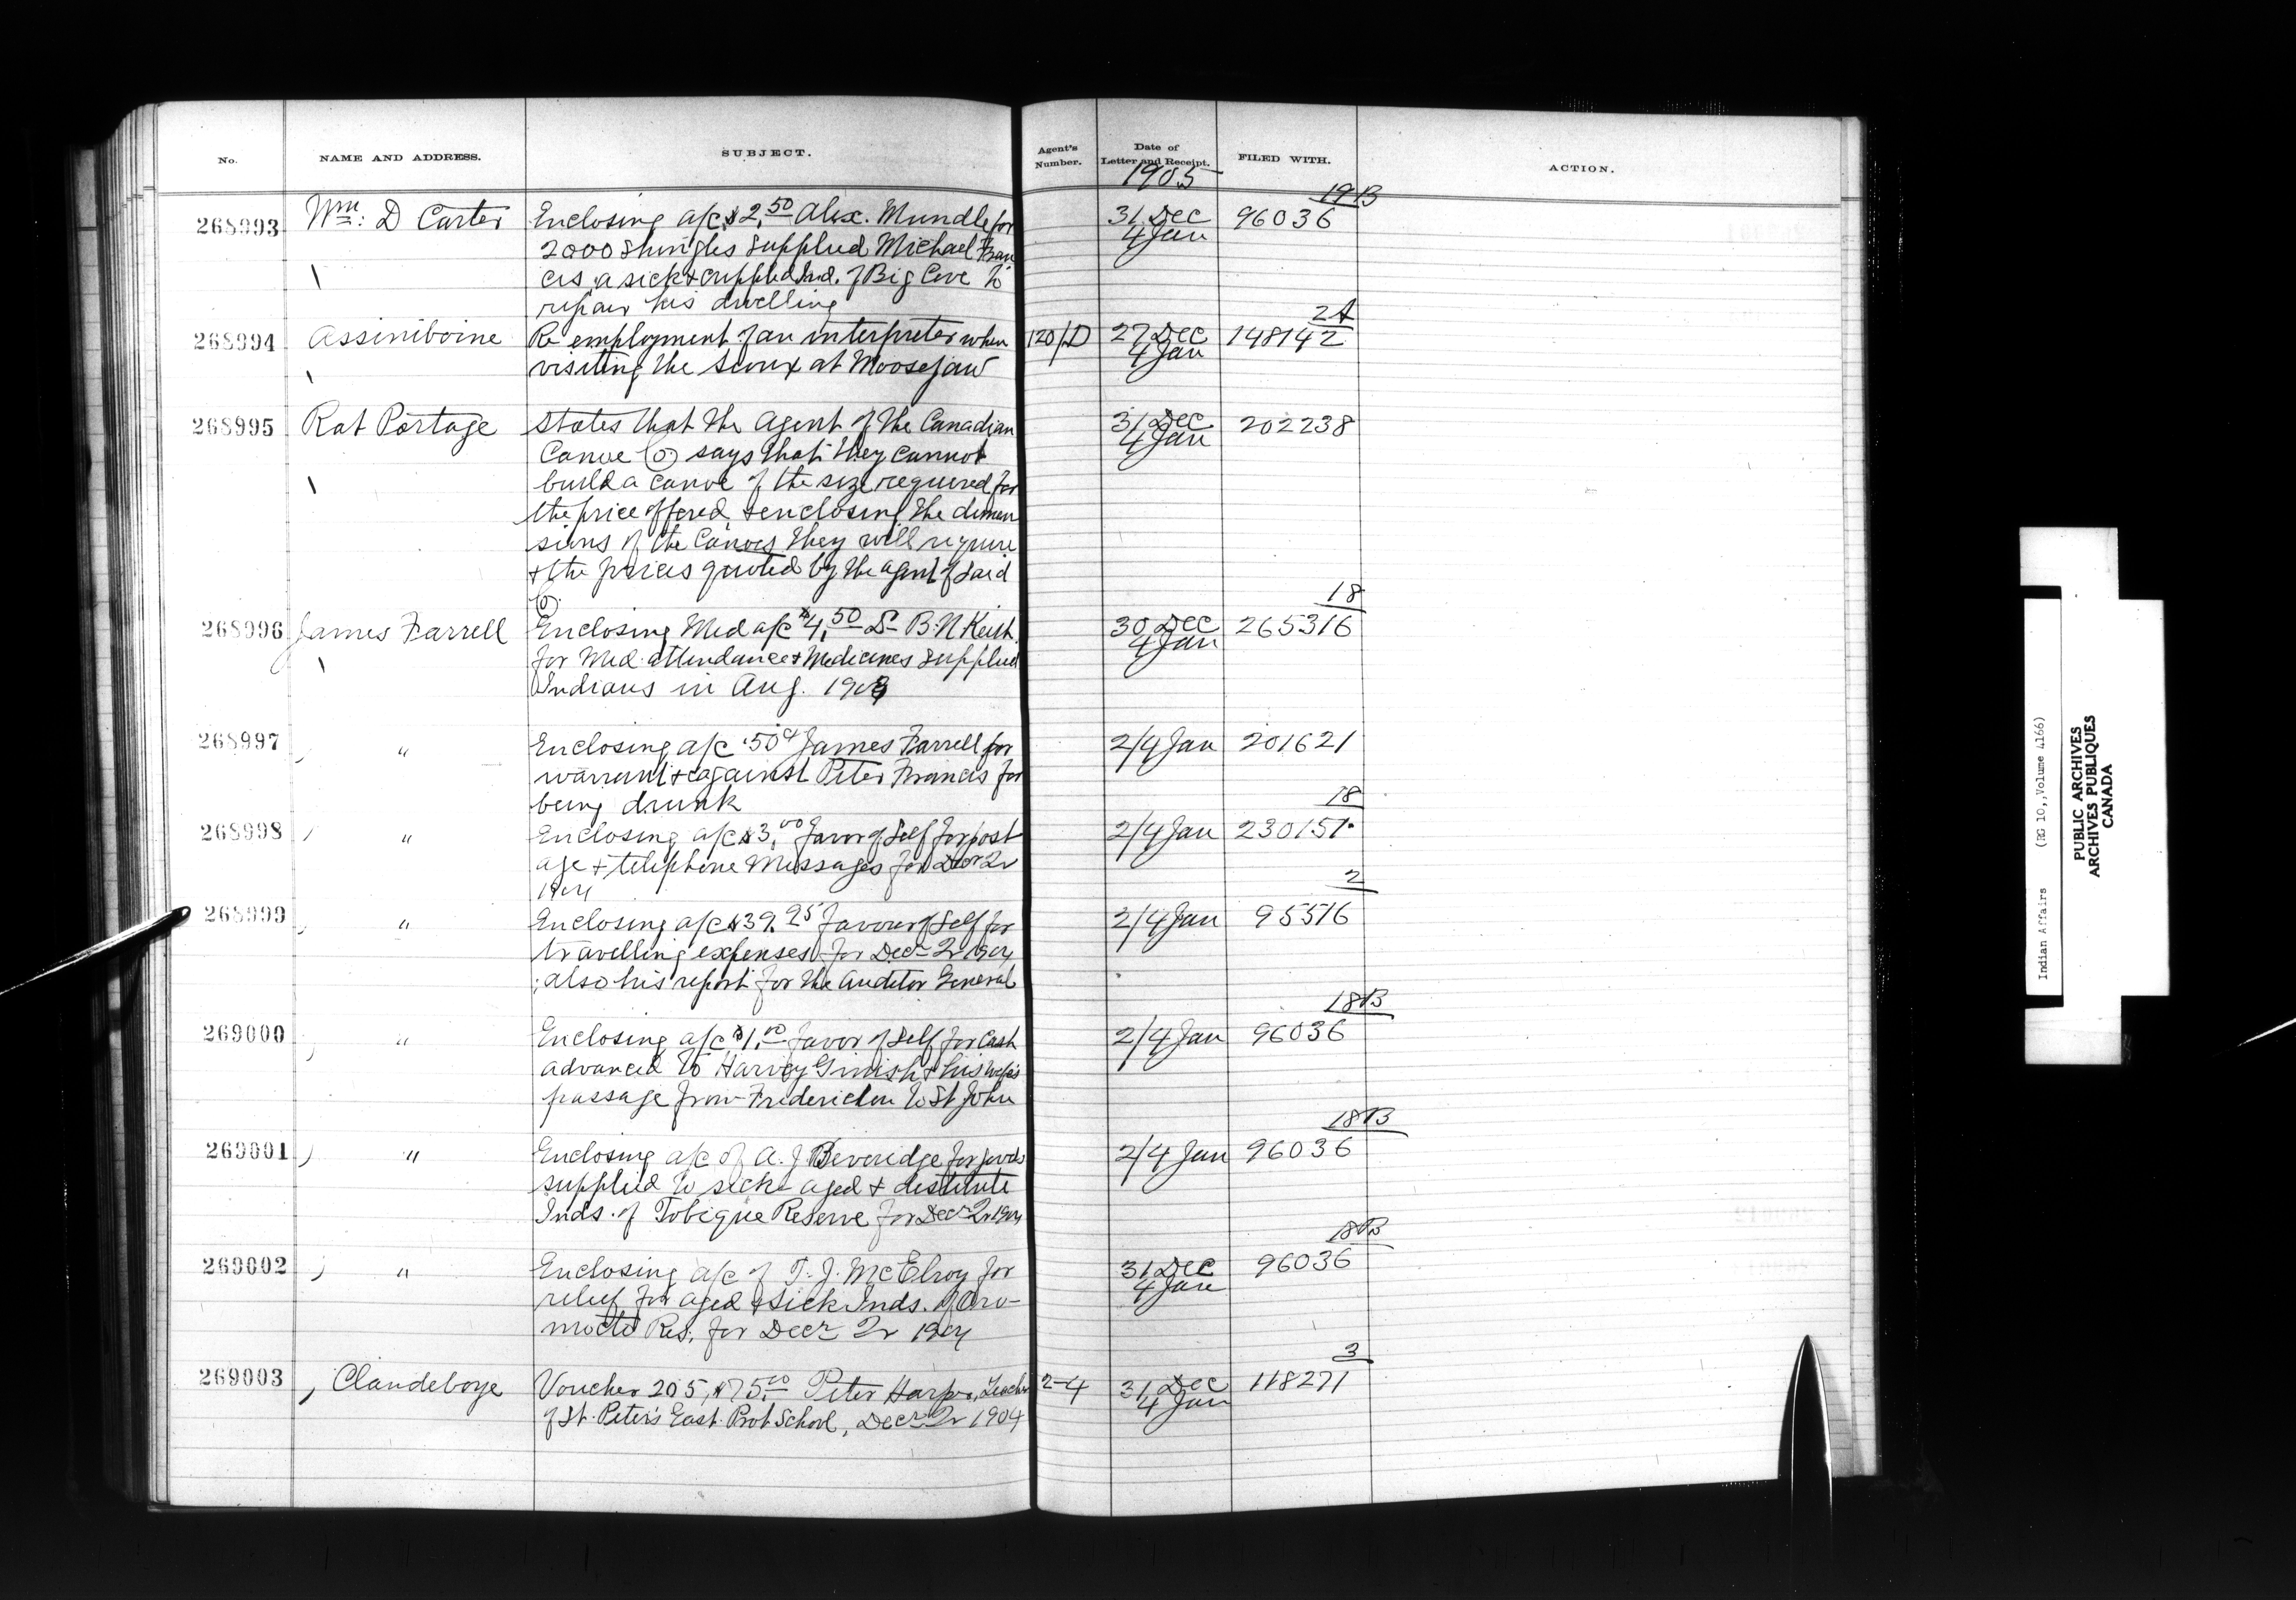 No. NAME AND ADDRESS. SUBJECT. Agent's Number. Date of Letter and Receipt. FILED WITH. ACTION.
1905
19B
268993 Wm: D Carter Enclosing a/c $2.50 Alex. Mundle for 31 Dec 96036
2000 Shingles supplied Michael Fran 4 Jan
cis, a sick & crippled Ind. of Big Cove to
repair his dwelling
2A
268994 Assiniboine Re employment of an interpreter when 120/D 27 Dec 148142
visiting the Sioux at Moosejaw 4 Jan
268995 Rat Portage States that the Agent of the Canadian 31 Dec 202238
Canoe Co says that they cannot 4 Jan
build a canoe of the size required for
the price offered, & enclosing the dimen
sions of the Canoes they will require
& the prices quoted by the agent of said
Co.
18
268996 James Farrell Enclosing Med a/c $4.50 Dr B.N Keith 30 Dec 265316
for Med. attendance & Medicines supplied 4 Jan
Indians in Aug. 1903
268997 " Enclosing a/c .50c James Farrell for 2/4 Jan 201621
warrant &c against Peter Francis for
being drunk
18
268998 " Enclosing a/c $3.00 favor of Self for post 2/4 Jan 230151
age & telephone Messages for Decr Qr
1904
2
268999 " Enclosing a/c $39.95 favour of Self for 2/4 Jan 95516
travelling expenses for Decr Qr 1904
; also his report for the Auditor General
18B
269000 " Enclosing a/c $1.00 favor of Self for Cash 2/4 Jan 96036
advanced to Harvey & his wife's
passage from Fredericton to St John
18B
269001 " Enclosing a/c of A. J Beveridge for goods 2/4 Jan 96036
supplied to sick aged & destitute
Inds. of Tobique Reserve for Decr Qr 1904
18B
269002 " Enclosing a/c of T. J. McElroy for 31 Dec 96036
relief for aged & sick Inds. of Oro- 4 Jan
mocto Res. for Decr Qr 1904
3
269003 Clandeboye Voucher 205, $75.00 Peter Harper, Teacher 2-4 31 Dec 118271
of St. Peter's East Prot School, Decr Qr 1904 4 Jan
Indian Affairs (RG 10, Volume 4166)
PUBLIC ARCHIVES
ARCHIVES PUBLIQUES
CANADA